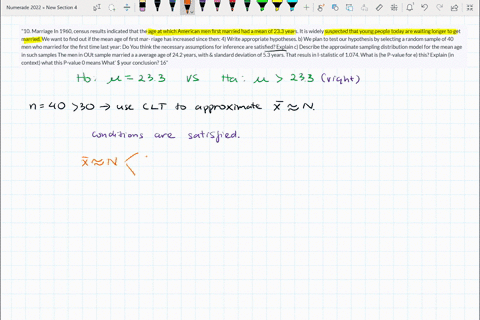 Numerade 2022 > New Section 4
"10. Marriage In 1960, census results indicated that the age at which American men first married had a mean of 23.3 years. It is widely suspected that young people today are waiting longer to get
married. We want to find out if the mean age of first mar- riage has increased since then: 4) Write appropriate hypotheses. b) We plan to test our hypothesis by selecting a random sample of 40
men who married for the first time last year: Do You think the necessary assumptions for inference are satisfied? Explain c) Describe the approximate sampling distribution model for the mean age
in such samples The men in OUt sample married a a average age of 24.2 years, with & standard deviation of 5.3 years. That resuls in I-statistic of 1.074. What is [he P-value for e) this? Explain (in
context) what this P-value means What' $ your conclusion? 16"
Ho: μ = 23.3 vs Ha: μ > 23.3 (right)
n = 40 > 30 → use CLT to approximate x̄ ≈ N.
conditions are satisfied.
x̄ ≈ N